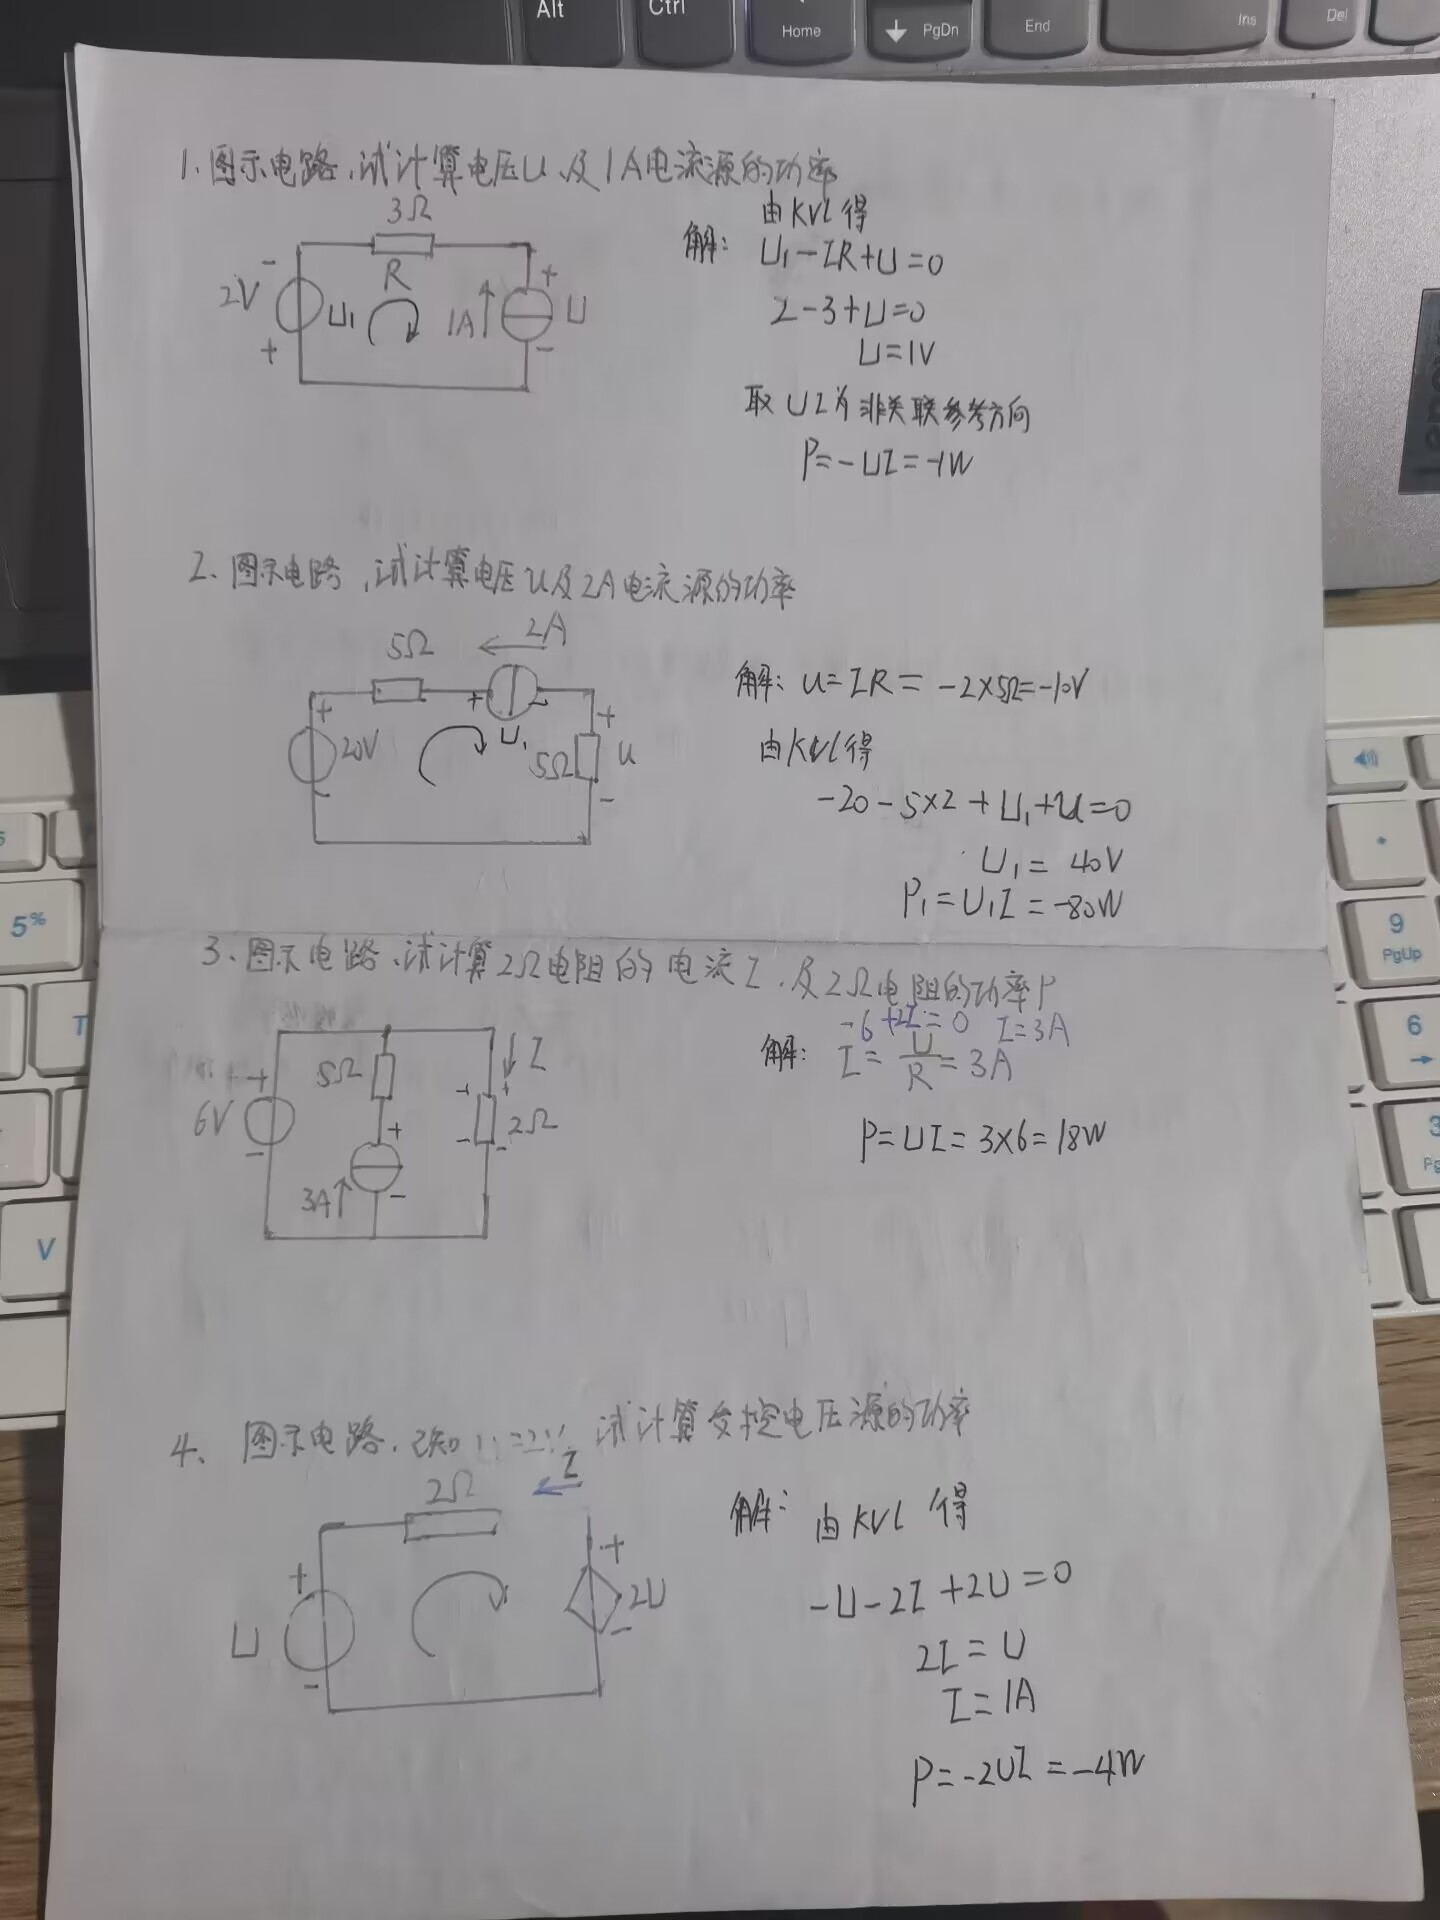 Alt
Ctrl
Home
PgDn
End
Ins
Del
1、图示电路,试计算电压U及1A电流源的功率
3Ω
R
2V
-
+
U₁
1A
+
U
-
由KVL得
解:
U₁-IR+U=0
2-3+U=0
U=1V
取UI为非关联参考方向
P=-UI=-1W
2、图示电路,试计算电压u及2A电流源的功率
5Ω
2A
+
-
U₁
+
20V
-
5Ω
+
u
-
解: u=IR=-2×5Ω=-10V
由KVL得
-20-5×2+U₁+u=0
U₁=40V
P₁=U₁I=-80W
3、图示电路,试计算2Ω电阻的电流I,及2Ω电阻的功率P
+
6V
-
5Ω
+
-
3A
I
+
+
2Ω
-
-
-6+2I=0 I=3A
解: I=U/R=3A
P=UI=3×6=18W
4、图示电路,已知 试计算受控电压源的功率
2Ω
I
+
U
-
+
2U
-
解: 由KVL得
-U-2I+2U=0
2I=U
I=1A
P=-2UI=-4W
5%
T
V
9
PgUp
6
3